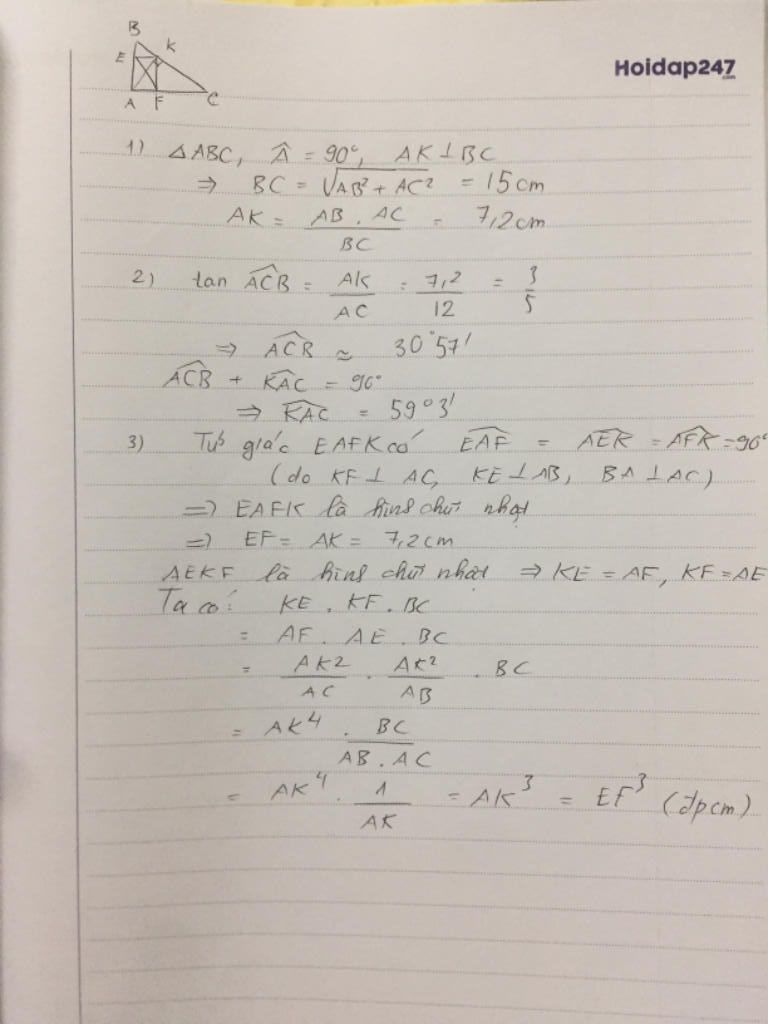 B
E K
A F C
Hoidap247
.com
1) △ABC, Â = 90°, AK ⊥ BC
⇒ BC = √(AB² + AC²) = 15cm
AK = (AB . AC)/BC = 7,2cm
2) tan ∠ACB = AK/AC = 7,2/12 = 3/5
⇒ ∠ACB ≈ 30°57'
∠ACB + ∠KAC = 90°
⇒ ∠KAC = 59°3'
3) Tứ giác EAFK có ∠EAF = ∠AEK = ∠AFK = 90°
(do KF ⊥ AC, KE ⊥ AB, BA ⊥ AC)
=> EAFK là hình chữ nhật
=> EF = AK = 7,2cm
AEKF là hình chữ nhật ⇒ KE = AF, KF = AE
Ta có: KE . KF . BC
= AF . AE . BC
= AK²/AC . AK²/AB . BC
= AK⁴ . BC/(AB . AC)
= AK⁴ . 1/AK = AK³ = EF³ (đpcm)